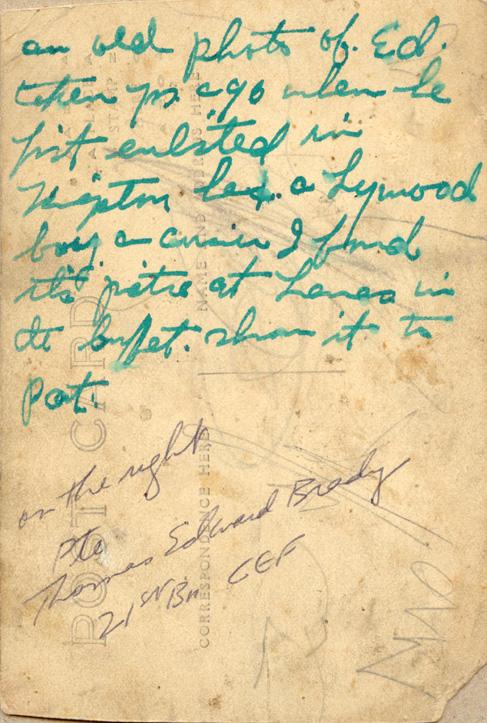 an old photo of Ed.
taken yrs ago when he
first enlisted in
he & a Lynwood
boy a cousin I found
this picture at Lena's in
de buffet. show it to
Pat.
on the right
Pte
Thomas Edward Brady
21st Bn CEF
POST CARD
CORRESPONDENCE HERE
NAME AND ADDRESS HERE